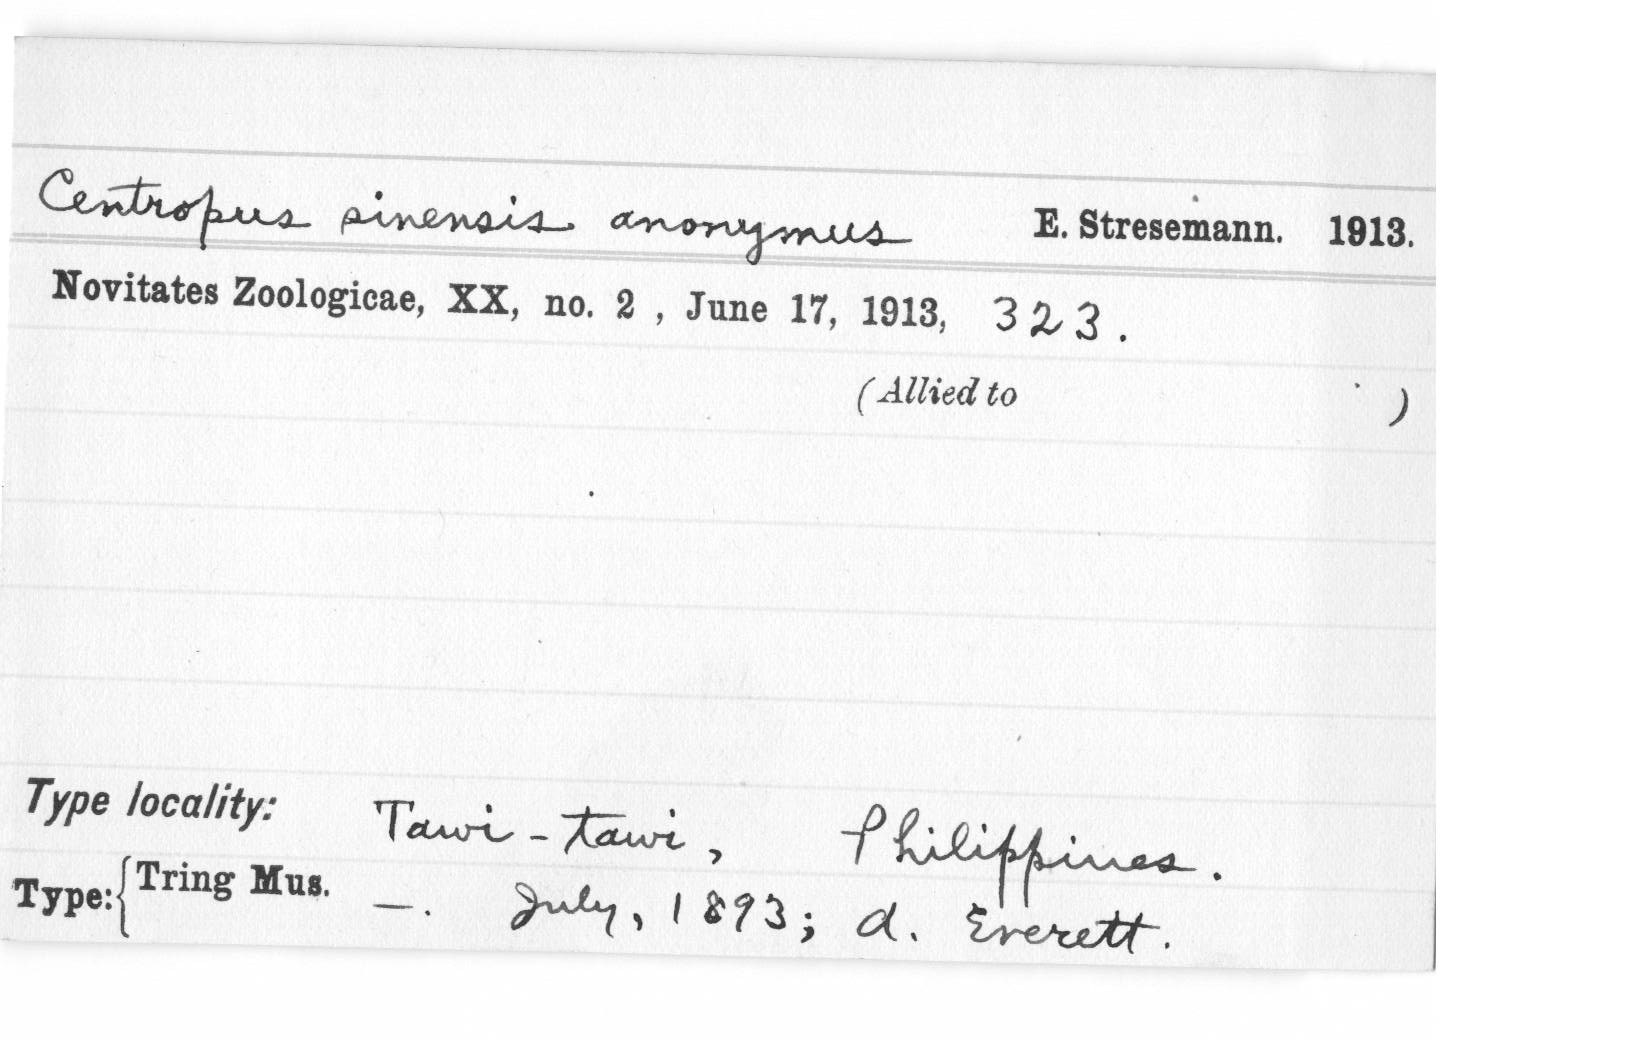 Centropus sinensis anonymus E. Stresemann. 1913.
Novitates Zoologicae, XX, no. 2 , June 17, 1913, 323.
(Allied to )
Type locality: Tawi-tawi, Philippines.
Type: { Tring Mus. —. July, 1893; A. Everett.